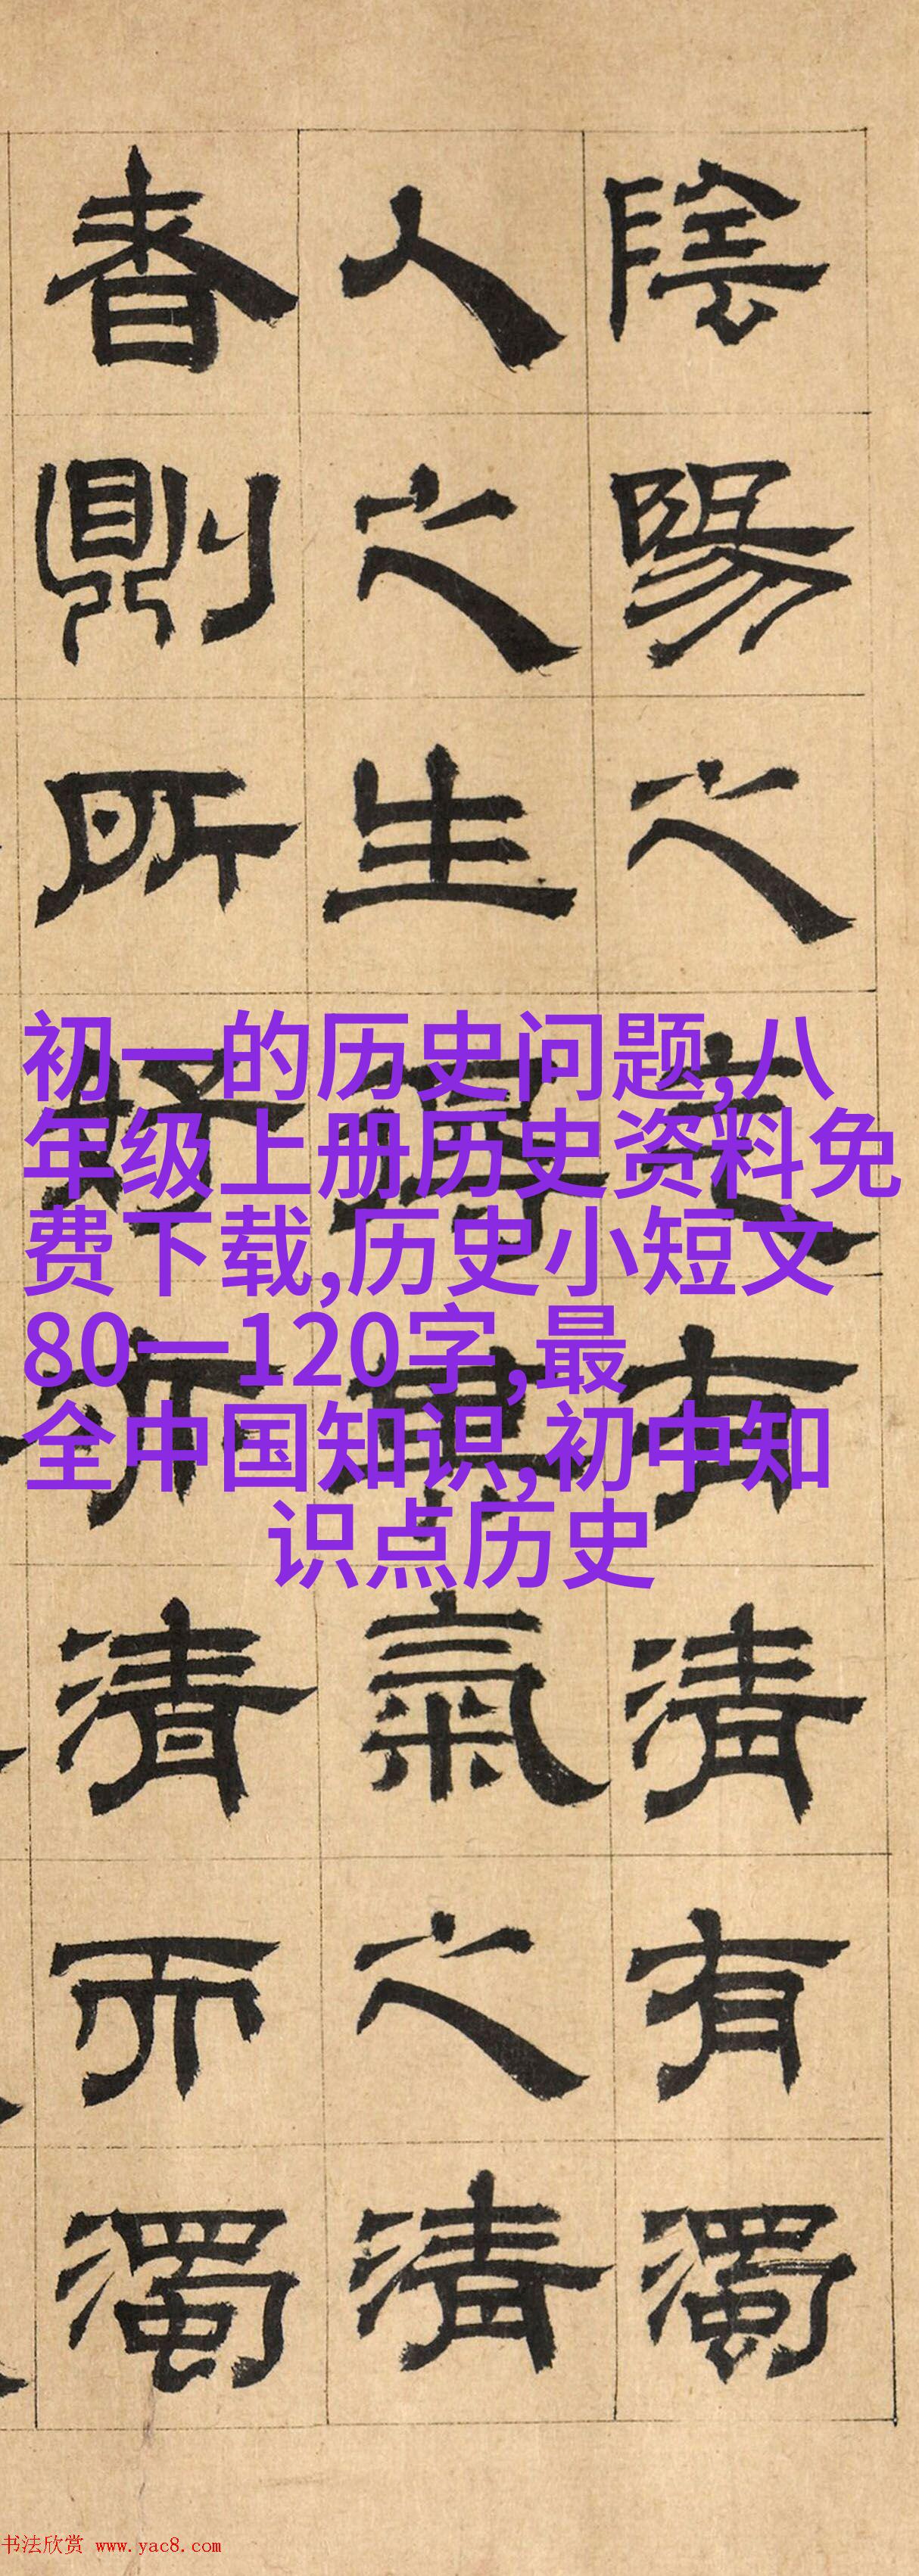 陰陽之有清有濁
人之生得其氣之清
者則所好清而濁
初一的历史问题,八
年级上册历史资料免
费下载,历史小短文
80一120字,最
全中国知识,初中知
识点历史
书法欣赏 www.yac8.com